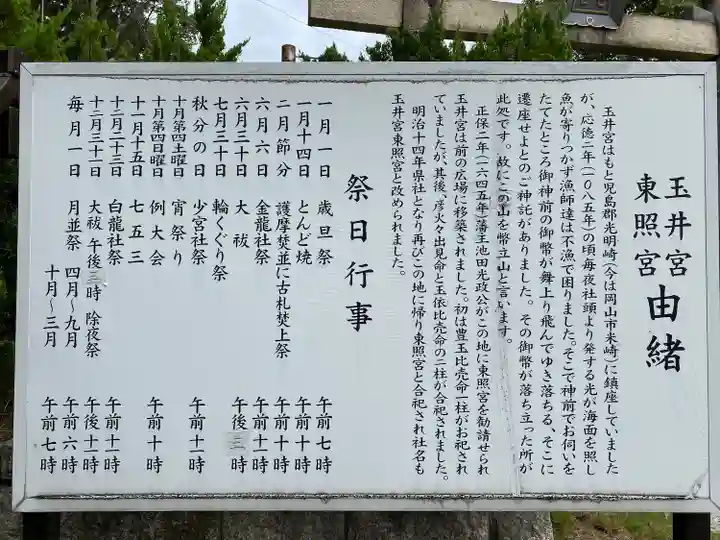 玉井宮
東照宮
由緒
玉井宮はもと児島郡光明崎(今は岡山市米崎)に鎮座していました
が、応徳二年(一〇八五年)の頃毎夜社頭より発する光が海面を照し
魚が寄りつかず漁師達は不漁で困りました。そこで神前でお伺いを
たてたところ御神前の御幣が舞上り飛んでゆき落ちる、そこに
遷座せよとのご神託がありました。その御幣が落ち立った所が
此処です。故にこの山を幣立山と言います。
正保二年(一六四五年)藩主池田光政公がこの地に東照宮を勧請せられ
玉井宮は前の広場に移築されました。初は豊玉比売命一柱がお祀され
ていましたが、其後、彦火々出見命と玉依比売命の二柱が合祀されました。
明治十四年県社となり再びこの地に帰り東照宮と合祀され社名も
玉井宮東照宮と改められました。
祭日行事
一月一日 歳旦祭 午前七時
一月十四日 とんど焼 午前十時
二月節分 護摩焚並に古札焚上祭 午前十時
六月六日 金龍社祭 午前十一時
六月三十日 大祓 午後三時
七月三十日 輪くぐり祭
秋分の日 少宮社祭 午前十一時
十月第四土曜 宵祭り
十月第四日曜日 例大会 午前十時
十一月十五日 七五三
十二月二十三日 白龍社祭 午前十一時
十二月三十一日 大祓 午後三時 除夜祭 午後十一時
毎月一日 月並祭 四月〜九月 午前六時
十月〜三月 午前七時